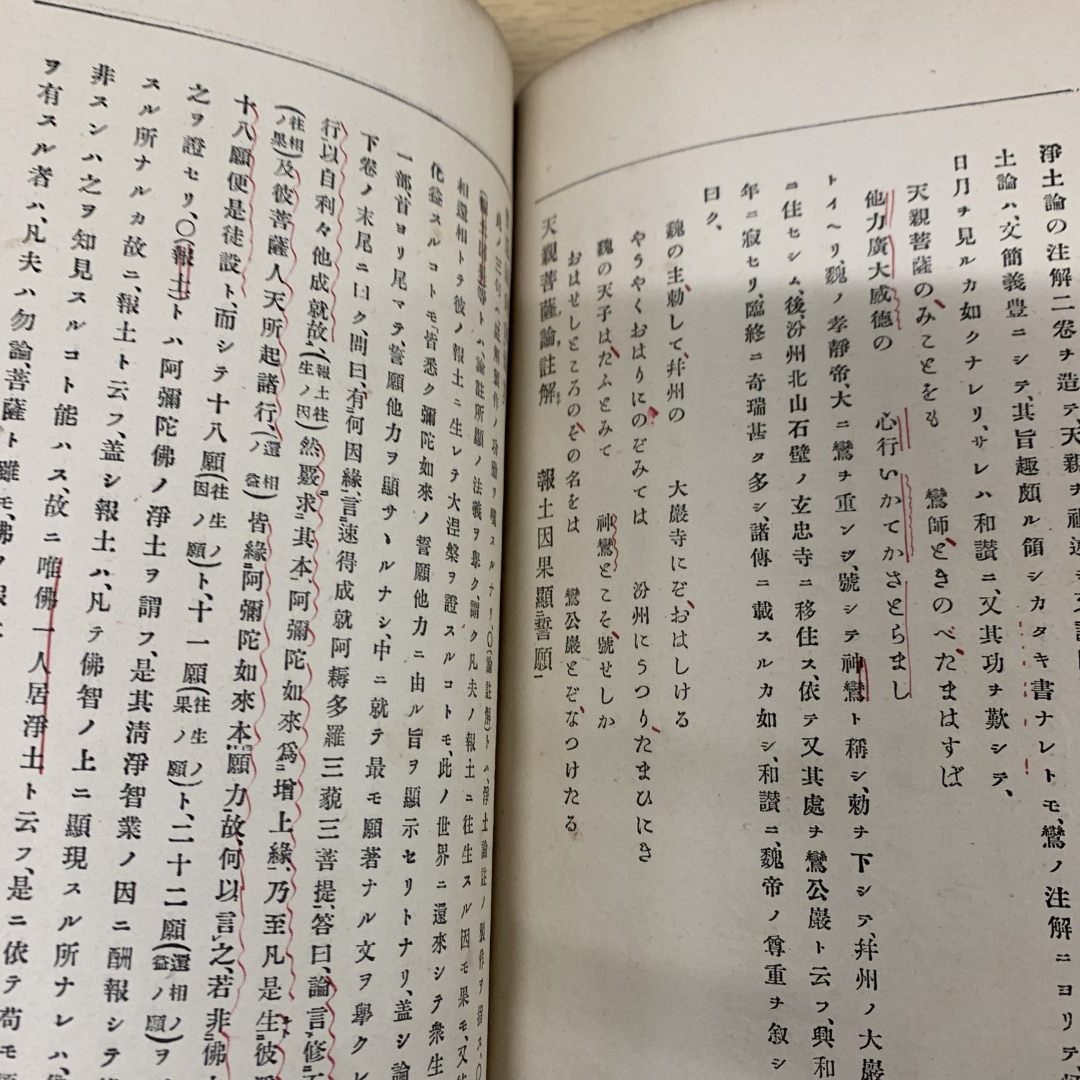 淨土論の注解二卷ヲ造テ、天親
土論ハ、文簡義豊ニシテ、其旨趣頗ル領シカタキ書ナレトモ、鸞ノ注解ニヨリテ
日月ヲ見ルカ如クナレリ、サレハ和讃ニ、又其功ヲ歎シテ、
天親菩薩のみことをも　鸞師ときのべたまはすば
他力廣大威德の　心行いかてかさとらまし
トイヘリ、魏ノ孝靜帝、大ニ鸞ヲ重シシ、號シテ神鸞ト稱シ、勅ヲ下シテ、幷州ノ大巖
ニ住セシム、後、汾州北山石壁ノ玄忠寺ニ移住ス、依テ又其處ヲ鸞公巖ト云フ、興和
年ニ寂セリ、臨終ニ奇瑞甚タ多シ、諸傳ニ載スルカ如シ、和讃ニ、魏帝ノ尊重ヲ叙シ
曰ク、
魏の主勅して、幷州の　大巖寺にぞおはしける
やうやくおはりにのぞみては　汾州にうつりたまひにき
魏の天子はたふとみて　神鸞とこそ號せしか
おはせしところのその名をは　鸞公巖とぞなつけたる
天親菩薩論註解　報土因果顯誓願
等トハ、論註所顯ノ法義ヲ擧ク、謂ク凡夫ノ報土ニ往生スル因モ果モ、又
相還相トテ彼ノ報土ニ生レテ大涅槃ヲ證スルコトモ、此ノ世界ニ還來シテ衆生
化益スルコトモ、皆悉ク彌陀如來ノ誓願他力ニ由ル旨ヲ顯示セリトナリ、盖シ論
一部、首ヨリ尾マテ、誓願他力ヲ顯サヽルナシ、中ニ就テ最モ顯著ナル文ヲ擧ク
下卷ノ末尾ニ曰ク、問曰、有何因緣、言速得成就阿耨多羅三藐三菩提、答曰、論言、修
行以自利々他成就故、(報土往生ノ因)然覈求其本、阿彌陀如來爲增上緣、乃至凡是生彼
(往相ノ果)及彼菩薩人天所起諸行、(還相ノ益)皆緣阿彌陀如來本願力故、何以言之、若非佛
十八願便是徒設ト、而シテ十八願(往生ノ因願)ト、十一願(往生ノ果願)ト、二十二願(還相ノ益願)ヲ
之ヲ證セリ、〇(報土)トハ阿彌陀佛ノ淨土ヲ謂フ、是其淸淨智業ノ因ニ酬報シテ
スル所ナルカ故ニ、報土ト云フ、盖シ報土ハ、凡テ佛智ノ上ニ顯現スル所ナレハ、
非スンハ之ヲ知見スルコト能ハス、故ニ唯佛一人居淨土ト云フ、是ニ依テ苟モ
ヲ有スル者ハ、凡夫ハ勿論、菩薩ト雖モ、佛ノ報土